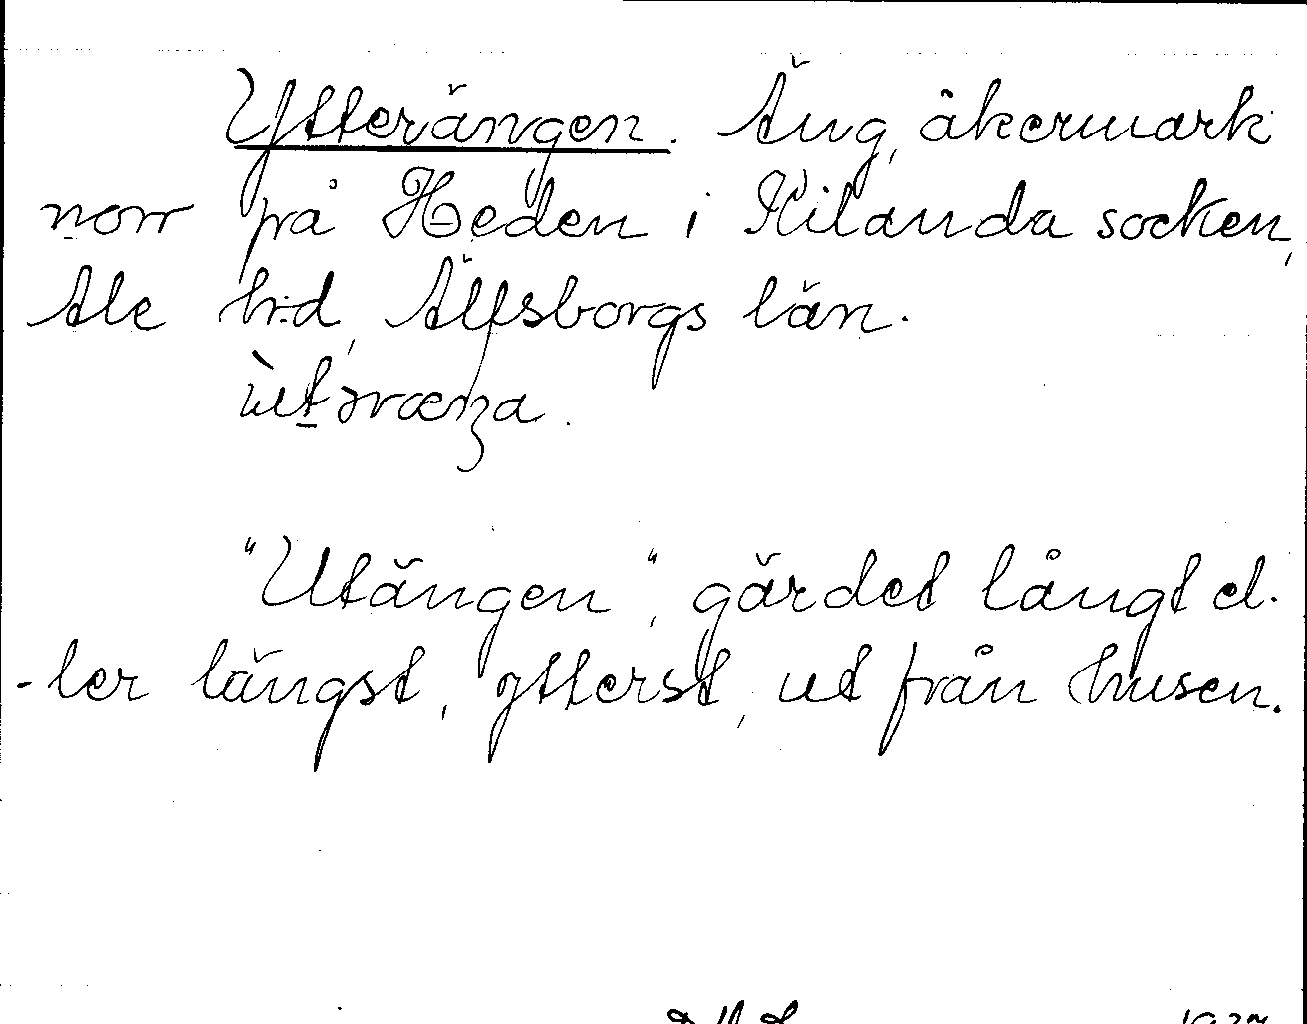 Ytterängen. Äng, åkermark
norr på Heden i Kilanda socken,
Ale hrd, Älfsborgs län.

"Utängen", gärdet långt el-
-ler längst, ytterst, ut från husen.